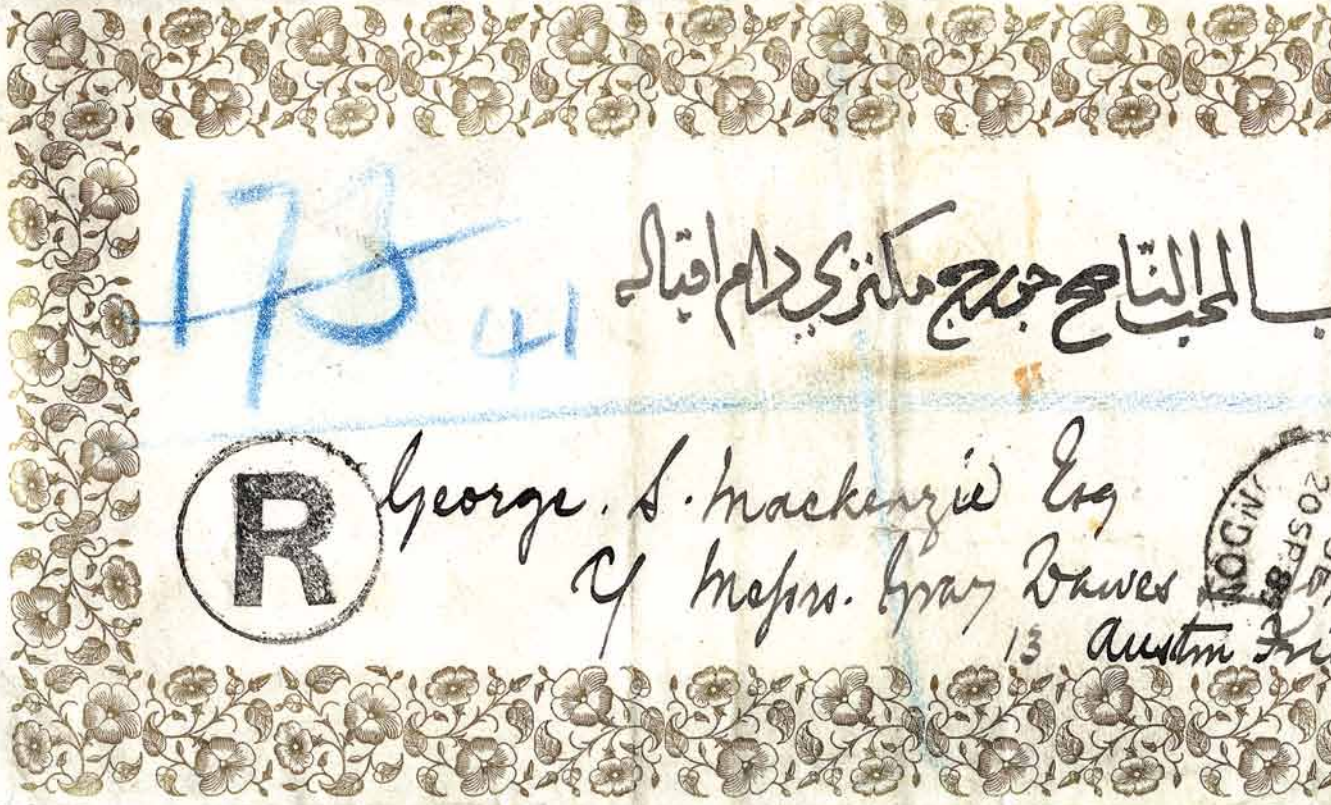 173
41
المحب الناصح جورج مكنزي دام اقباله
R
George. S. Mackenzie Esq
c/ Messrs. Gray Dawes
13 Austin
LONDON
20 SP 8